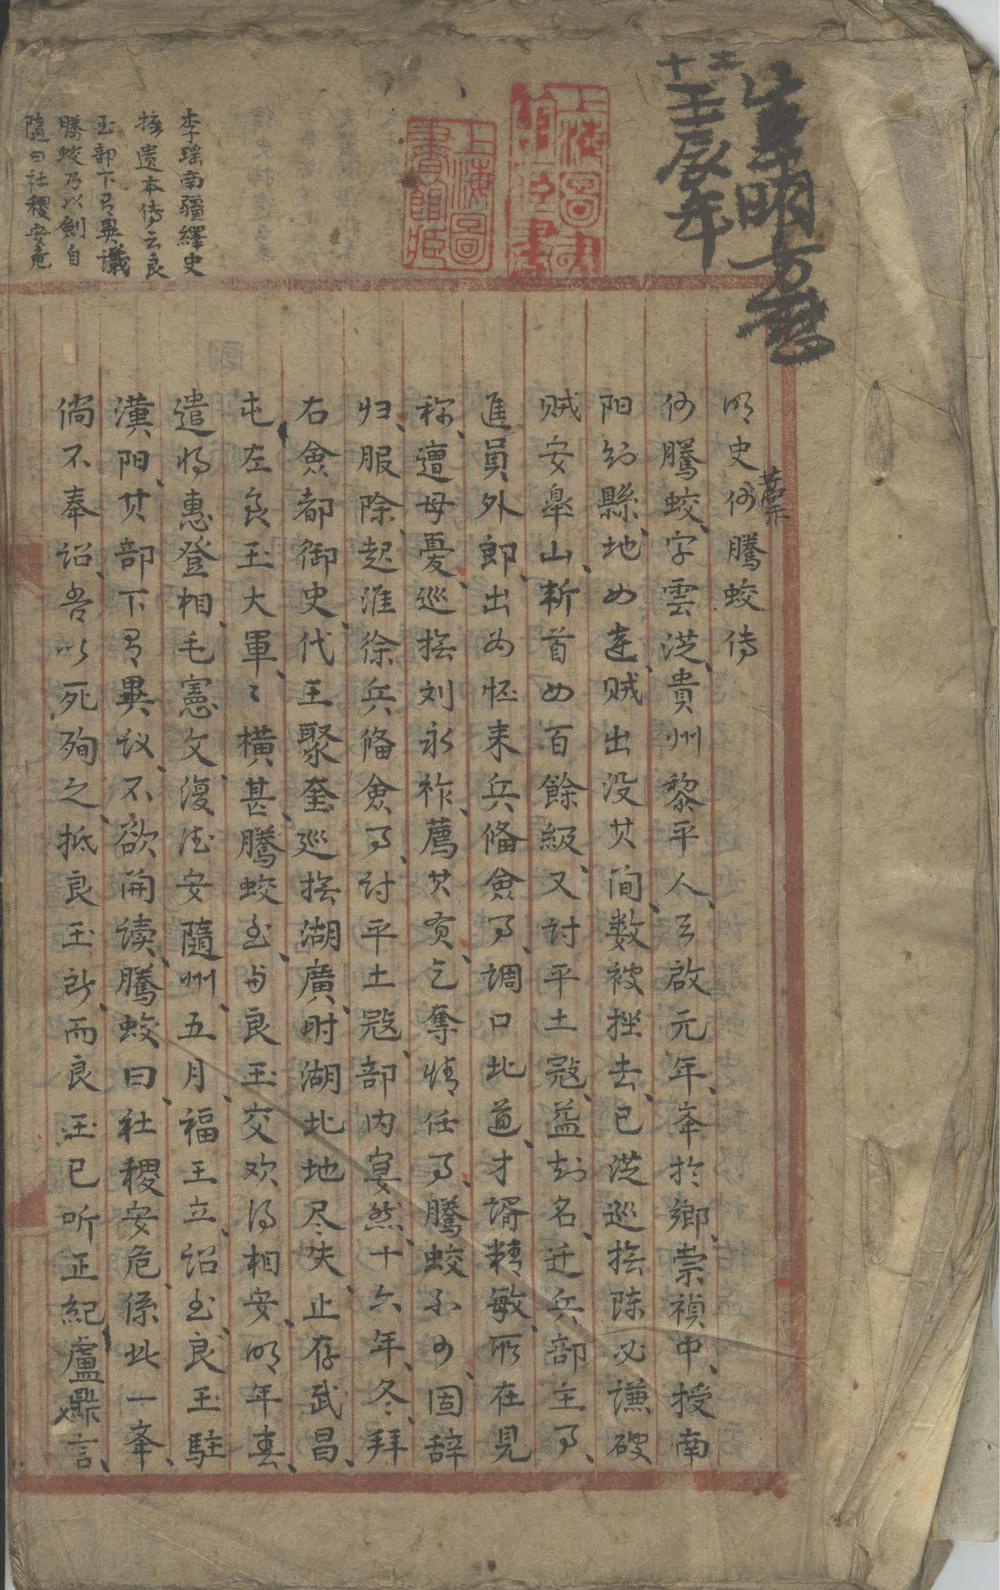 明史何騰蛟传
何騰蛟、字雲從、貴州黎平人、天啟元年、举於鄉、崇禎中、授南
阳知縣、地当達、贼出没其间、数被挫去、已從巡撫陈必谦破
贼安皋山、斬首四百餘級、又讨平土冦、益知名、迁兵部主事、
進員外郎、出为怀来兵偹僉事、調口北道、才谞精敏、所在見
称、遭母憂、巡撫刘永祚、薦其贤、乞奪情任事、騰蛟不可、固辞
归、服除、起淮徐兵偹僉事、讨平土冦、部内宴然、十六年、冬、拜
右僉都御史、代王聚奎巡撫湖廣、时湖北地尽失、止存武昌、
屯左良玉大軍、〻横甚、騰蛟至、与良玉交欢、得相安、明年春、
遣将惠登相、毛憲文、復德安隨州、五月、福王立、诏至、良玉駐
漢阳、其部下有異议、不欲開读、騰蛟曰、社稷安危、係此一举、
倘不奉诏、吾以死殉之、抵良玉所、而良玉已听正紀盧鼎言、
李瑶南疆繹史
摭遗本传云良
玉部下有異議
騰蛟乃以劍自
隨曰社稷安危
壬辰年
上海圖書館藏書
上海圖書館藏